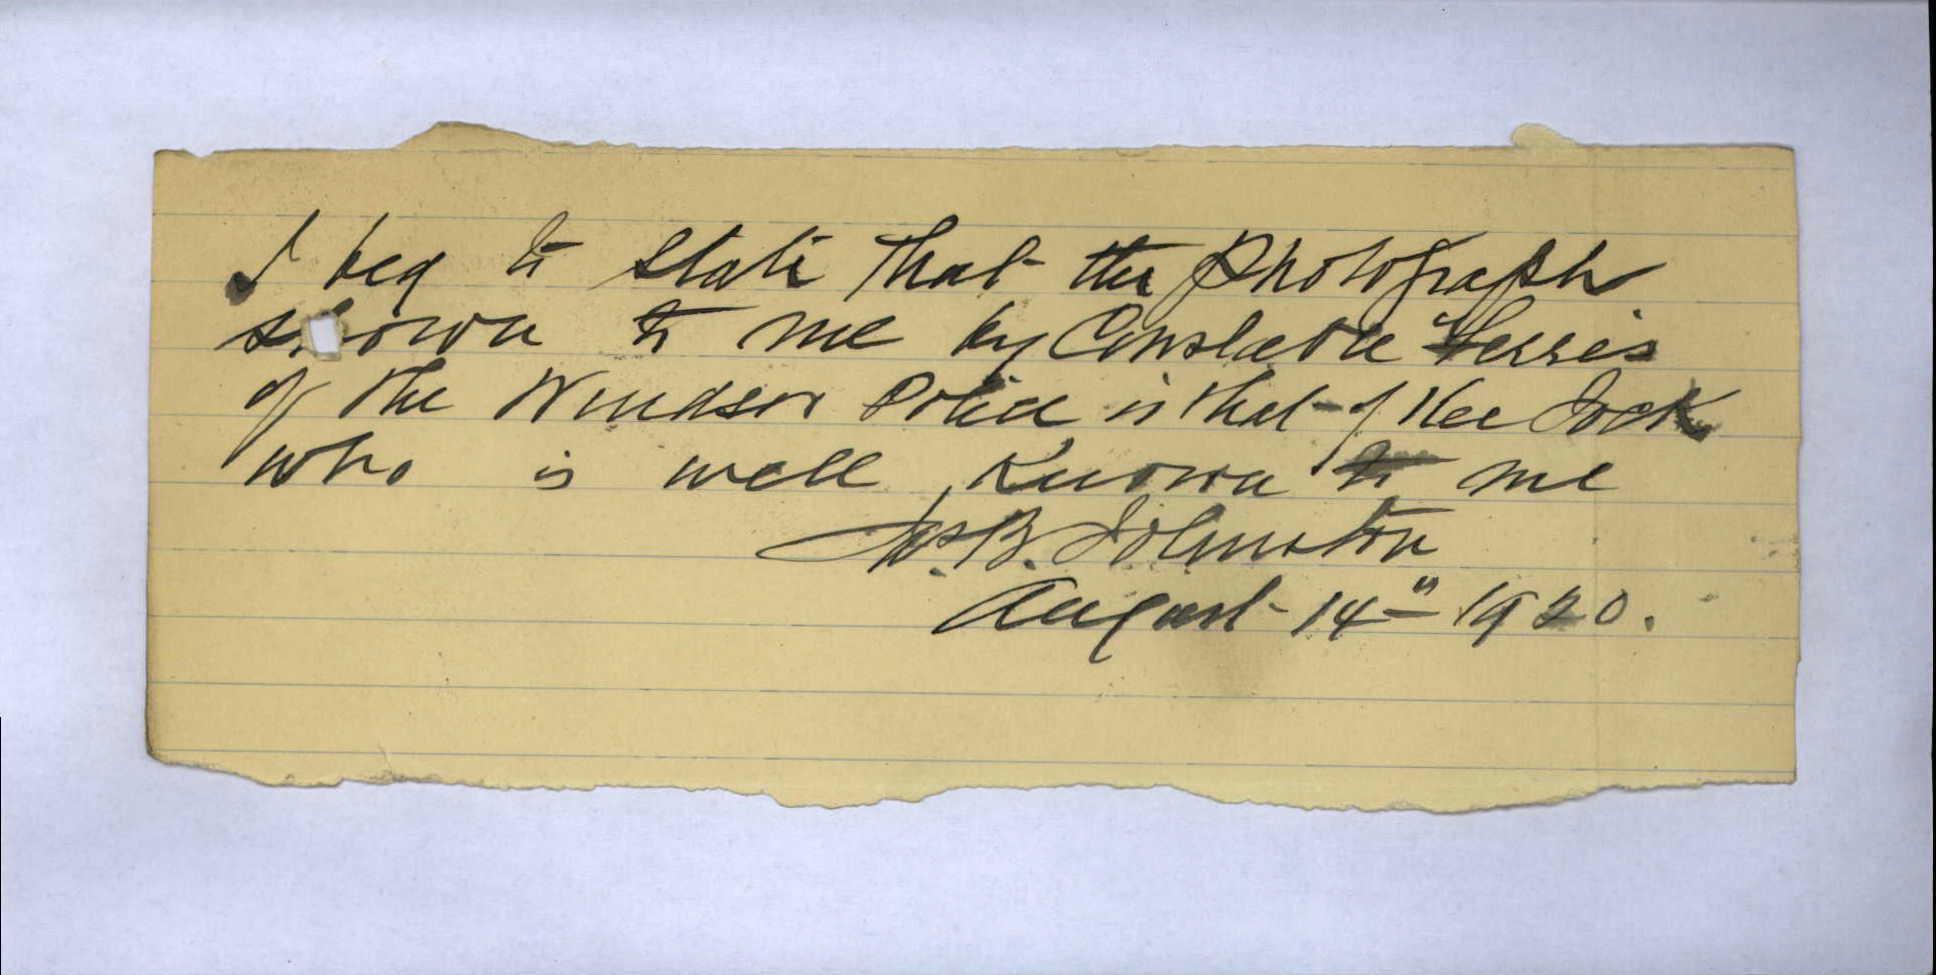 I beg to state that the Photograph
shown to me by Constable Ferris
of the Windsor Police is that of Kee Jock
who is well Known to me
Jas. B. Johnston
August 14" 1920.